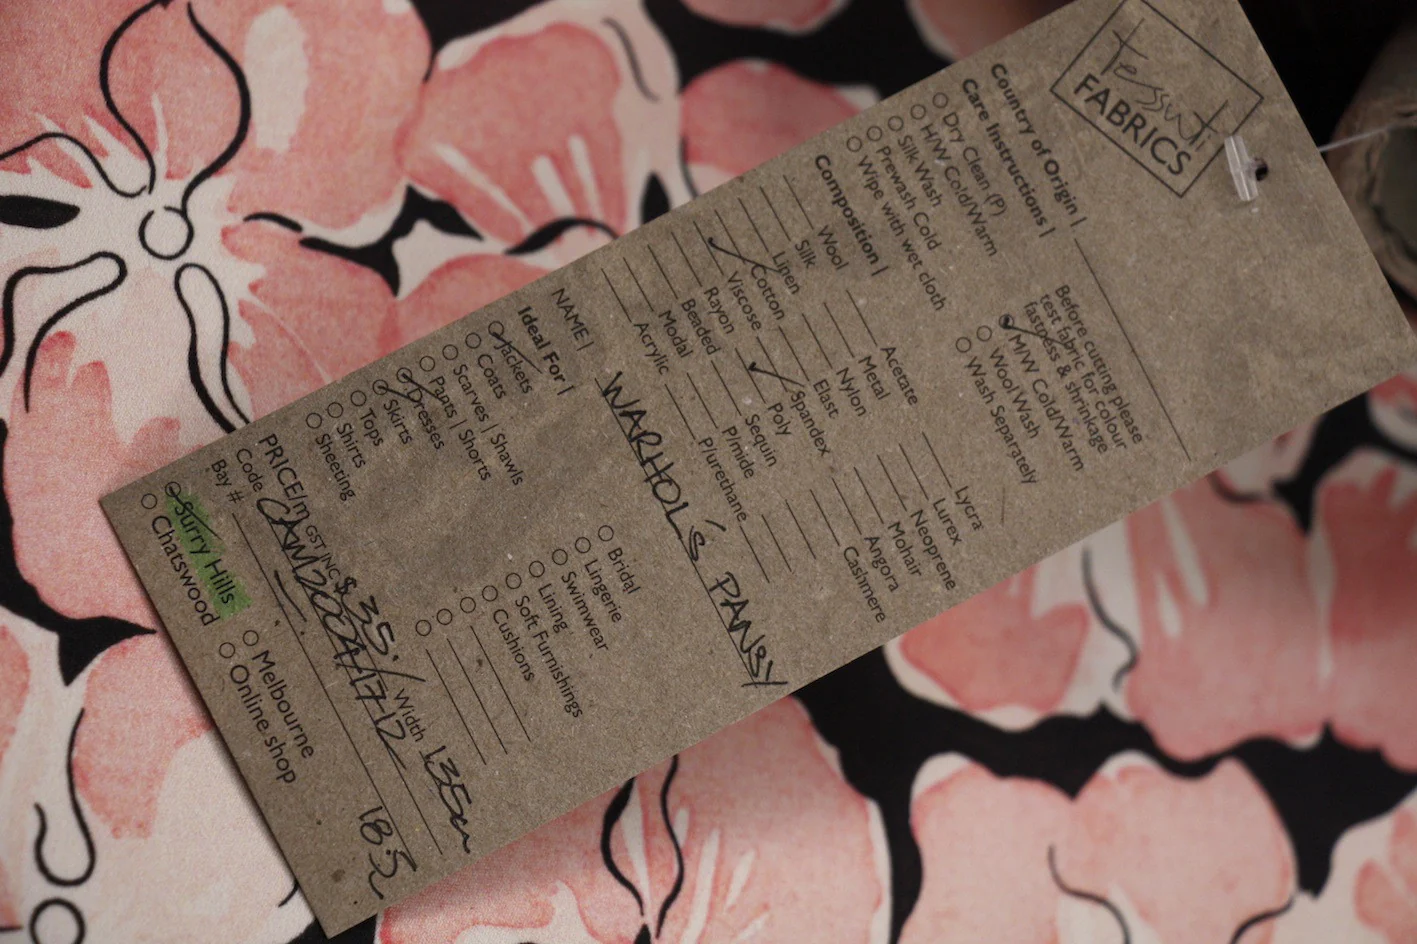 tessuti
FABRICS
Country of Origin |
Care Instructions |
Dry Clean (P)
H/W Cold/Warm
Silk Wash
Prewash Cold
Wipe with wet cloth
Before cutting please
test fabric for colour
fastness & shrinkage
M/W Cold/Warm
Wool Wash
Wash Separately
Composition |
Wool
Silk
Linen
Cotton
Viscose
Rayon
Beaded
Modal
Acrylic
Acetate
Metal
Nylon
Elast
Spandex
Poly
Sequin
P/mide
P/urethane
Lycra
Lurex
Neoprene
Mohair
Angora
Cashmere
NAME |
WARHOL'S PANSY
Ideal For |
Jackets
Coats
Scarves | Shawls
Pants | Shorts
Dresses
Skirts
Tops
Shirts
Sheeting
Bridal
Lingerie
Swimwear
Lining
Soft Furnishings
Cushions
PRICE/m GST INC $ 35. Width 135cm
Code
Bay #
Surry Hills
Chatswood
Melbourne
Online shop